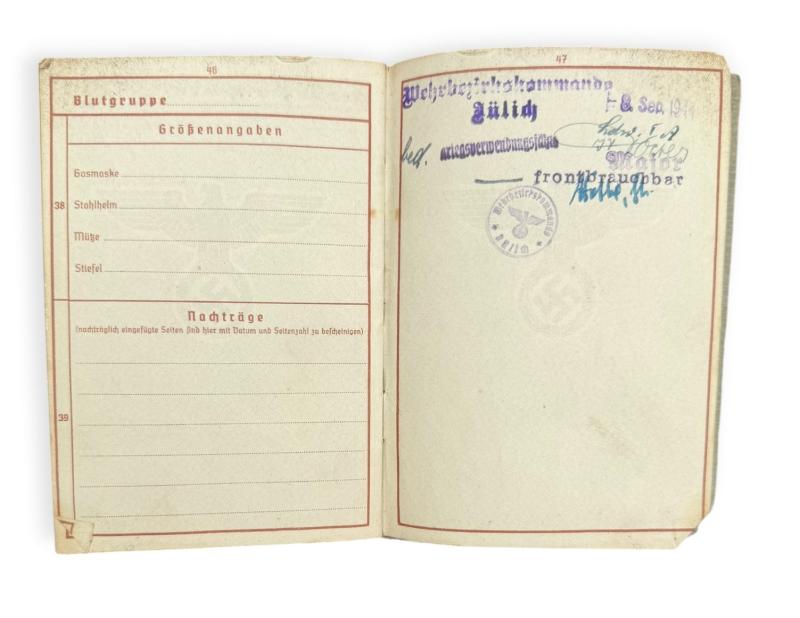 46
Blutgruppe
Größenangaben
38
Gasmaske
Stahlhelm
Mütze
Stiefel
Nachträge
(nachträglich eingefügte Seiten sind hier mit Datum und Seitenzahl zu bescheinigen)
39
47
Wehrbezirkskommando
Jülich
8. Sep. 194
bed. kriegsverwendungsfähig
Major
frontbrauchbar
Wehrbezirkskommando
Jülich